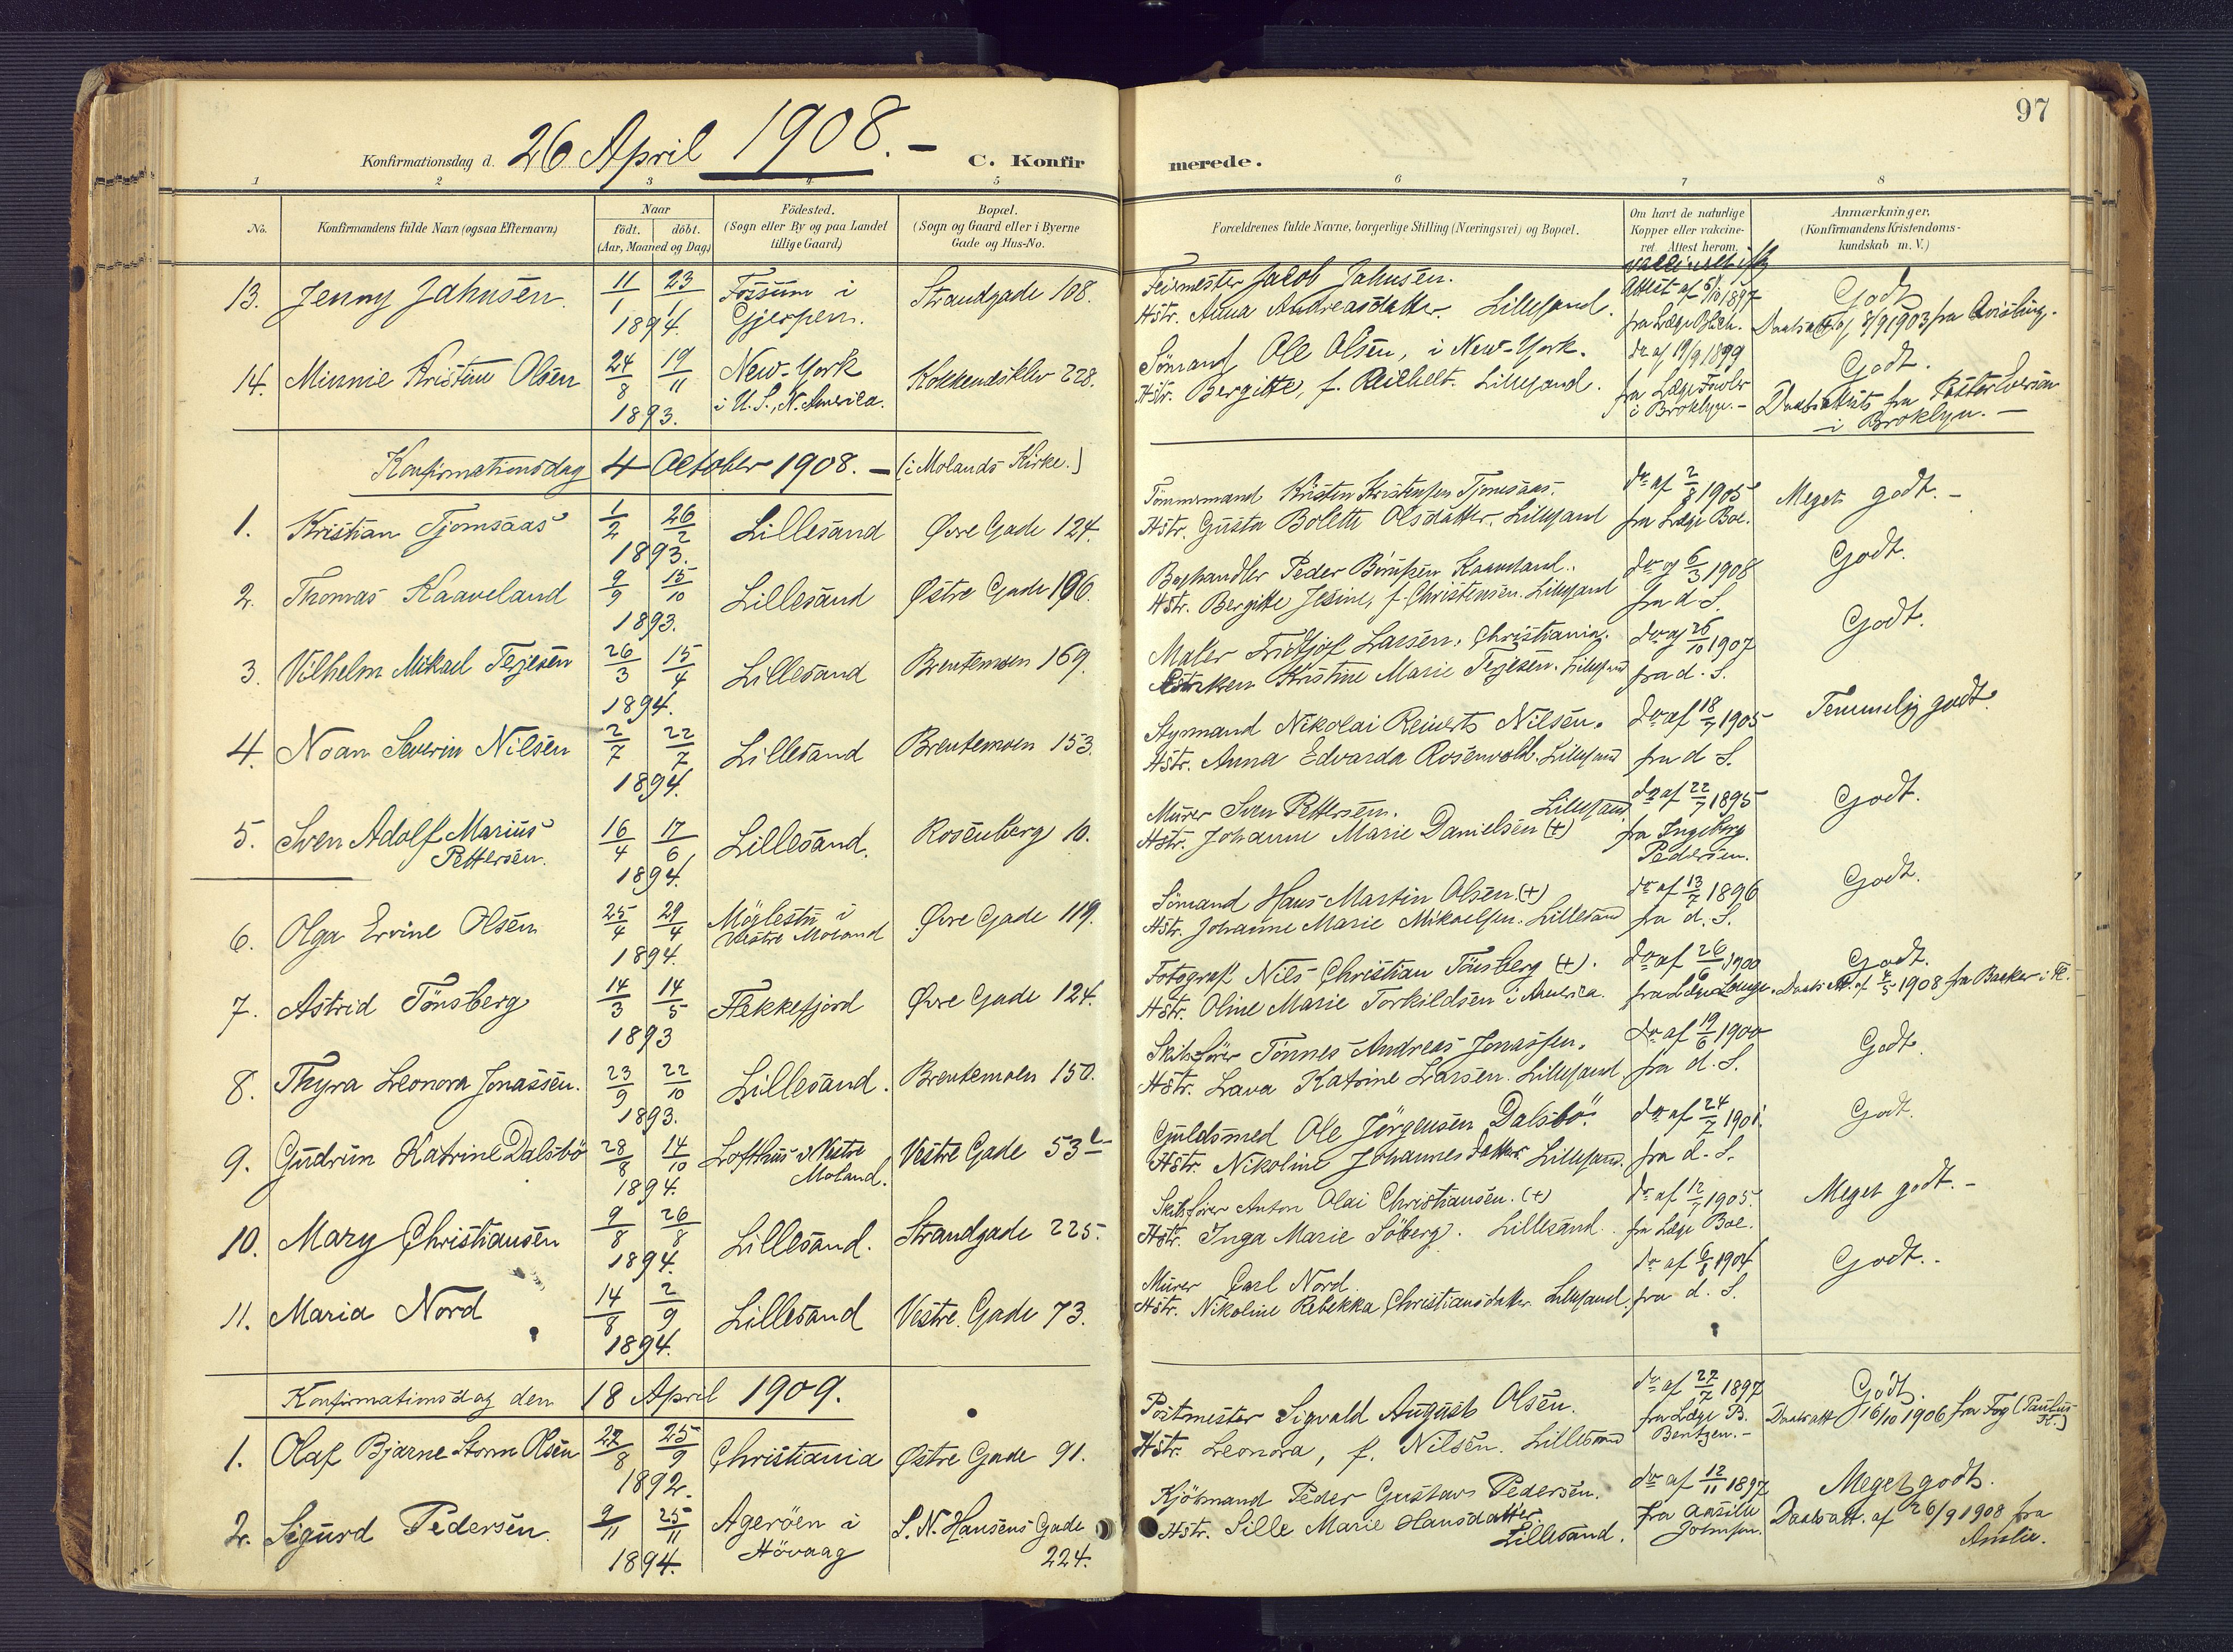 97
Konfirmationsdag d. 26 April 1908. —
C. Konfir
merede.
1 2 3 4 5 6 7 8
No.
Konfirmandens fulde Navn (ogsaa Efternavn)
Naar
födt. döbt.
(Aar, Maaned og Dag)
Födested.
(Sogn eller By og paa Landet
tillige Gaard)
Bopæl.
(Sogn og Gaard eller i Byerne
Gade og Hus-No.
Forældrenes fulde Navne, borgerlige Stilling (Næringsvei) og Bopæl.
Om havt de naturlige
Kopper eller vakcine-
ret. Attest herom.
Anmærkninger.
(Konfirmandens Kristendoms-
kundskab m. V.)
13. Jenny Jahnsen. 11/1 23/1 1894. Fossum i Gjerpen. Strandgade 108.
Feiermester Jacob Jahnsen.
Hstr. Anna Andreasdatter. Lillesand.
Attest af 5/10 1897
fra Læge Blich.
Godt
Daabsatt. af 8/9 1903 fra
14. Minnie Kristine Olsen 24/8 19/11 1893. New-York i U.S., N. America. Kokkendsklev 228.
Sömand Ole Olsen, i New-York.
Hstr. Bergitte, f. Reichelt. Lillesand.
do af 19/9 1899
fra Læge Fowler
i Broklyn. —
Godt.
Daabsattest fra Pastor
i Broklyn. —
Konfirmationsdag 4 October 1908. — (i Molands Kirke.)
1. Kristian Tjomsaas 1/2 26/2 1893. Lillesand Øvre Gade 124.
Tömmermand Kristen Kristensen Tjomsaas.
Hstr. Gusta Bolette Olsdatter. Lillesand
do af 2/8 1905
fra Læge Boe.
Meget godt. —
2. Thomas Kaaveland 9/9 15/10 1893. Lillesand Østre Gade 196.
Peder Kaaveland.
Hstr. Bergitte Jesine, f. Christensen. Lillesand
do af 6/3 1908
fra d. S.
Godt.
3. Vilhelm Mikael Terjesen 26/3 15/4 1894. Lillesand Brentemoen 169.
Maler Fridtjof Larsen, Christiania.
Kristine Marie Terjesen. Lillesand
do af 26/10 1907
fra d. S.
Godt.
4. Noan Severin Nilsen 2/7 22/7 1894. Lillesand Brentemoen 153.
Styrmand Nikolai Reinerts Nilsen.
Hstr. Anna Edvarda Rosenvold. Lillesand
do af 18/7 1905
fra d S.
Temmelig godt.
5. Sven Adolf Marius Pettersen. 16/4 17/6 1894. Lillesand. Rosenberg 10.
Murer Sven Pettersen. Lillesand,
Hstr. Johanne Marie Danielsen (+)
do af 22/7 1895
fra Ingeborg
Pedersen.
Godt.
6. Olga Ervine Olsen 25/4 29/4 1894. Möglestu i Vestre Moland Øvre Gade 119.
Sömand Hans Martin Olsen. (+)
Hstr. Johanne Marie Mikaelsen. Lillesand
do af 13/7 1896
fra d. S.
Godt.
7. Astrid Tönsberg 14/3 14/5 1893 Flekkefjord Øvre Gade 124.
Fotograf Nils Christian Tönsberg (+).
Hstr. Oline Marie Torkildsen i America.
do af 26/6 1900
fra Læge Lange.
Godt.
Daabs Att. af 4/5 1908 fra Barker i Fl.
8. Thyra Leonora Jonassen. 23/9 22/10 1893. Lillesand. Brentemoen 150.
Skibsförer Tönnes Andreas Jonassen.
Hstr. Lava Katrine Larsen. Lillesand.
do af 19/6 1900
fra d. S.
Godt.
9. Gudrun Katrine Dalsbö 28/8 14/10 1894. Lofthus i Vestre Moland. Vestre Gade 53 b
Guldsmed Ole Jörgensen Dalsbö.
Hstr. Nikoline Johannesdatter. Lillesand.
do af 24/7 1901.
fra d. S.
Godt.
10. Mary Christiansen 9/8 26/8 1894. Lillesand. Strandgade 225.
Skibsförer Anton Olai Christiansen. (+)
Hstr. Inga Marie Söberg. Lillesand.
do af 12/7 1905.
fra Læge Boe.
Meget godt. —
11. Maria Nord 14/8 2/9 1894. Lillesand Vestre Gade 73.
Murer Carl Nord.
Hstr. Nikoline Rebekka Christiansdatter. Lillesand.
do af 6/8 1904
fra d. S.
Godt.
Konfirmationsdag den 18 April 1909.
1. Olaf Bjarne Storm Olsen 22/8 25/9 1892. Christiania Østre Gade 91.
Postmester Sigvald August Olsen.
Hstr. Leonora, f. Nilsen. Lillesand
do af 22/7 1897
fra Læge B.
Bentzen. —
Godt.
Daabsatt 16/10 1906 fra Fog (Paulus K.)
2. Sigurd Pedersen. 9/11 25/11 1894. Agerøen i Hövaag S. N. Hansens Gade 224.
Kjöbmand Peder Gustav Pedersen.
Hstr. Sille Marie Hansdatter. Lillesand.
do af 12/11 1897
fra
Johnsen.
Meget godt.
Daabsatt. af 26/9 1908 fra